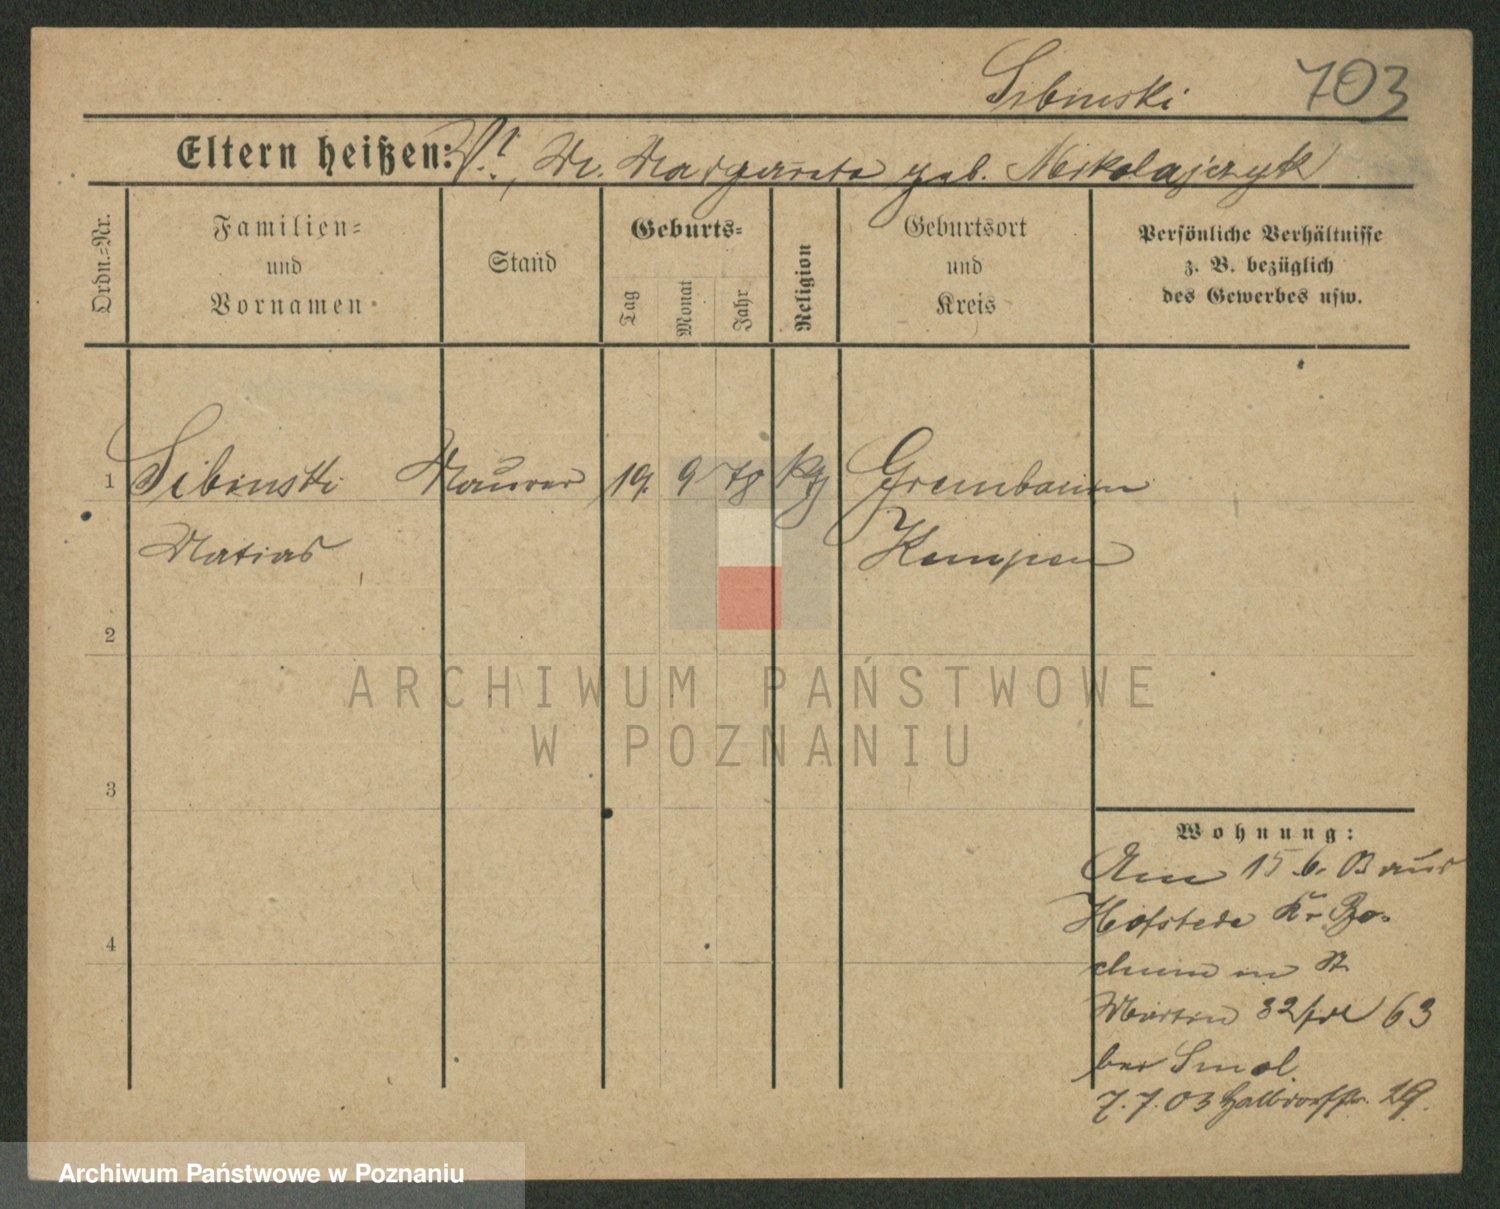 Sibinski 703
Eltern heißen: V. ?, M. Margareta geb. Mikolajczyk
Ordn.-Nr.
Familien-
und
Vornamen
Stand
Geburts-
Tag
Monat
Jahr
Religion
Geburtsort
und
Kreis
Persönliche Verhältnisse
z. B. bezüglich
des Gewerbes usw.
1 Sibinski Maurer 19. 9 78 Grembanin
Matias Kempen
2
ARCHIWUM PAŃSTWOWE
W POZNANIU
3
4
Wohnung:
Am 15.6.03 aus
Hofstede Kr. Bo-
chum in St.
Martin 32/ 63
bei Smol.
7.7.03 Halbdorfstr. 19.
Archiwum Państwowe w Poznaniu